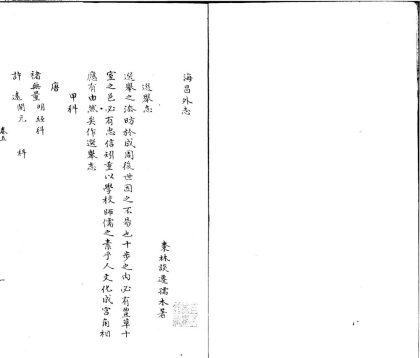 海昌外志
棗林談遷孺木著
選舉志
選舉之法昉於成周後世因之不易也十步之內必有豊草十
室之邑必有忠信矧重以學校師儒之素乎人文化成宮角相
應有由然矣作選舉志
甲科
唐
褚無量明經科
許遠開元 科
卷五